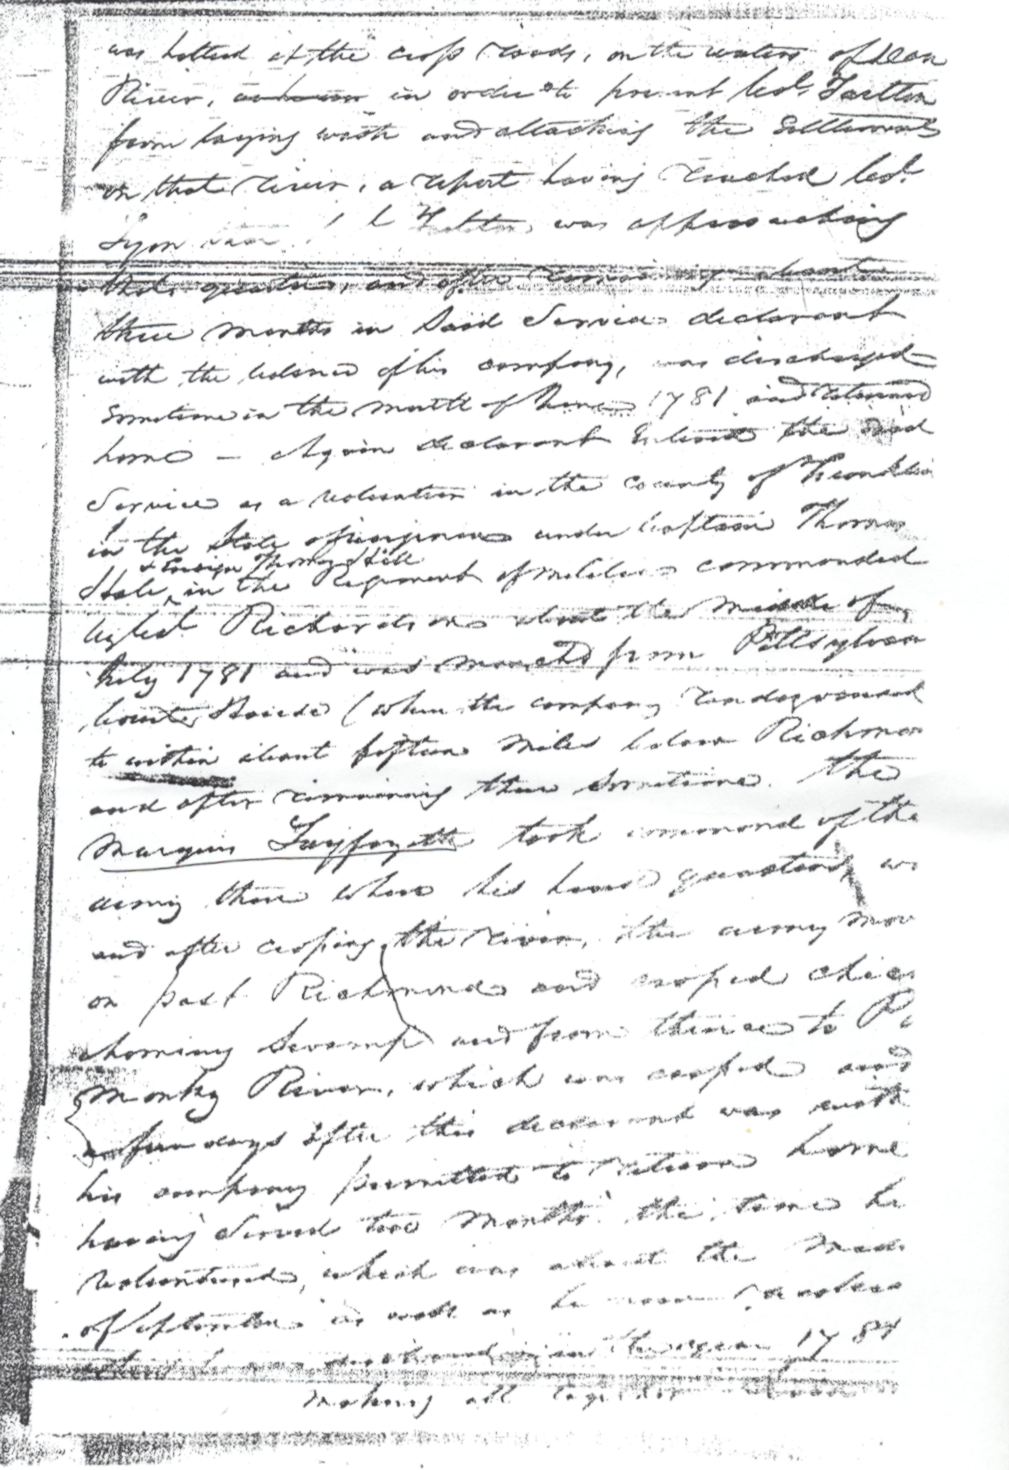 was halted at the cross roads, on the waters of Dan
River, in order to prevent Col. Tarlton
from laying waste and attacking the Settlements
on that river, a report having reached Col.
Lyon was approaching
that quarter, and after remaining about
three months in Said Service declarant
with the balance of his company, was discharged
Sometime in the month of 1781 and returned
home — Again declarant Entered the said
Service as a volunteer in the county of Franklin
in the State of Virginia under Captain Thomas
& Ensign Thomas Hill
Hale, in the Regiment of militia commanded
by Col. Richardson about the middle of
July 1781 and was marched from Pittsylvan
County (where the company rendezvoused
to within about fifteen miles below Richmon
and after remaining there Sometime. The
Marquis Layfayette took command of the
army there where his head quarters w
and after crossing the river, the army mov
on past Richmond and crossed chica
hominy Swamp and from thence to Pa
monky River, which was crossed and
a few days after this declarant was with
his company permitted to return home
having Served two months the time he
volunteered, which was about the
of September as well as he now
in the year 1781
making all together about